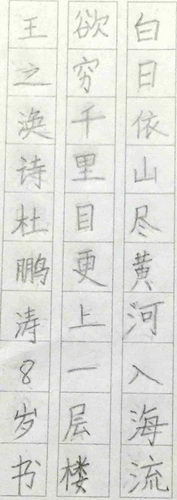 白日依山尽黄河入海流
欲穷千里目更上一层楼
王之涣诗杜鹏涛8岁书